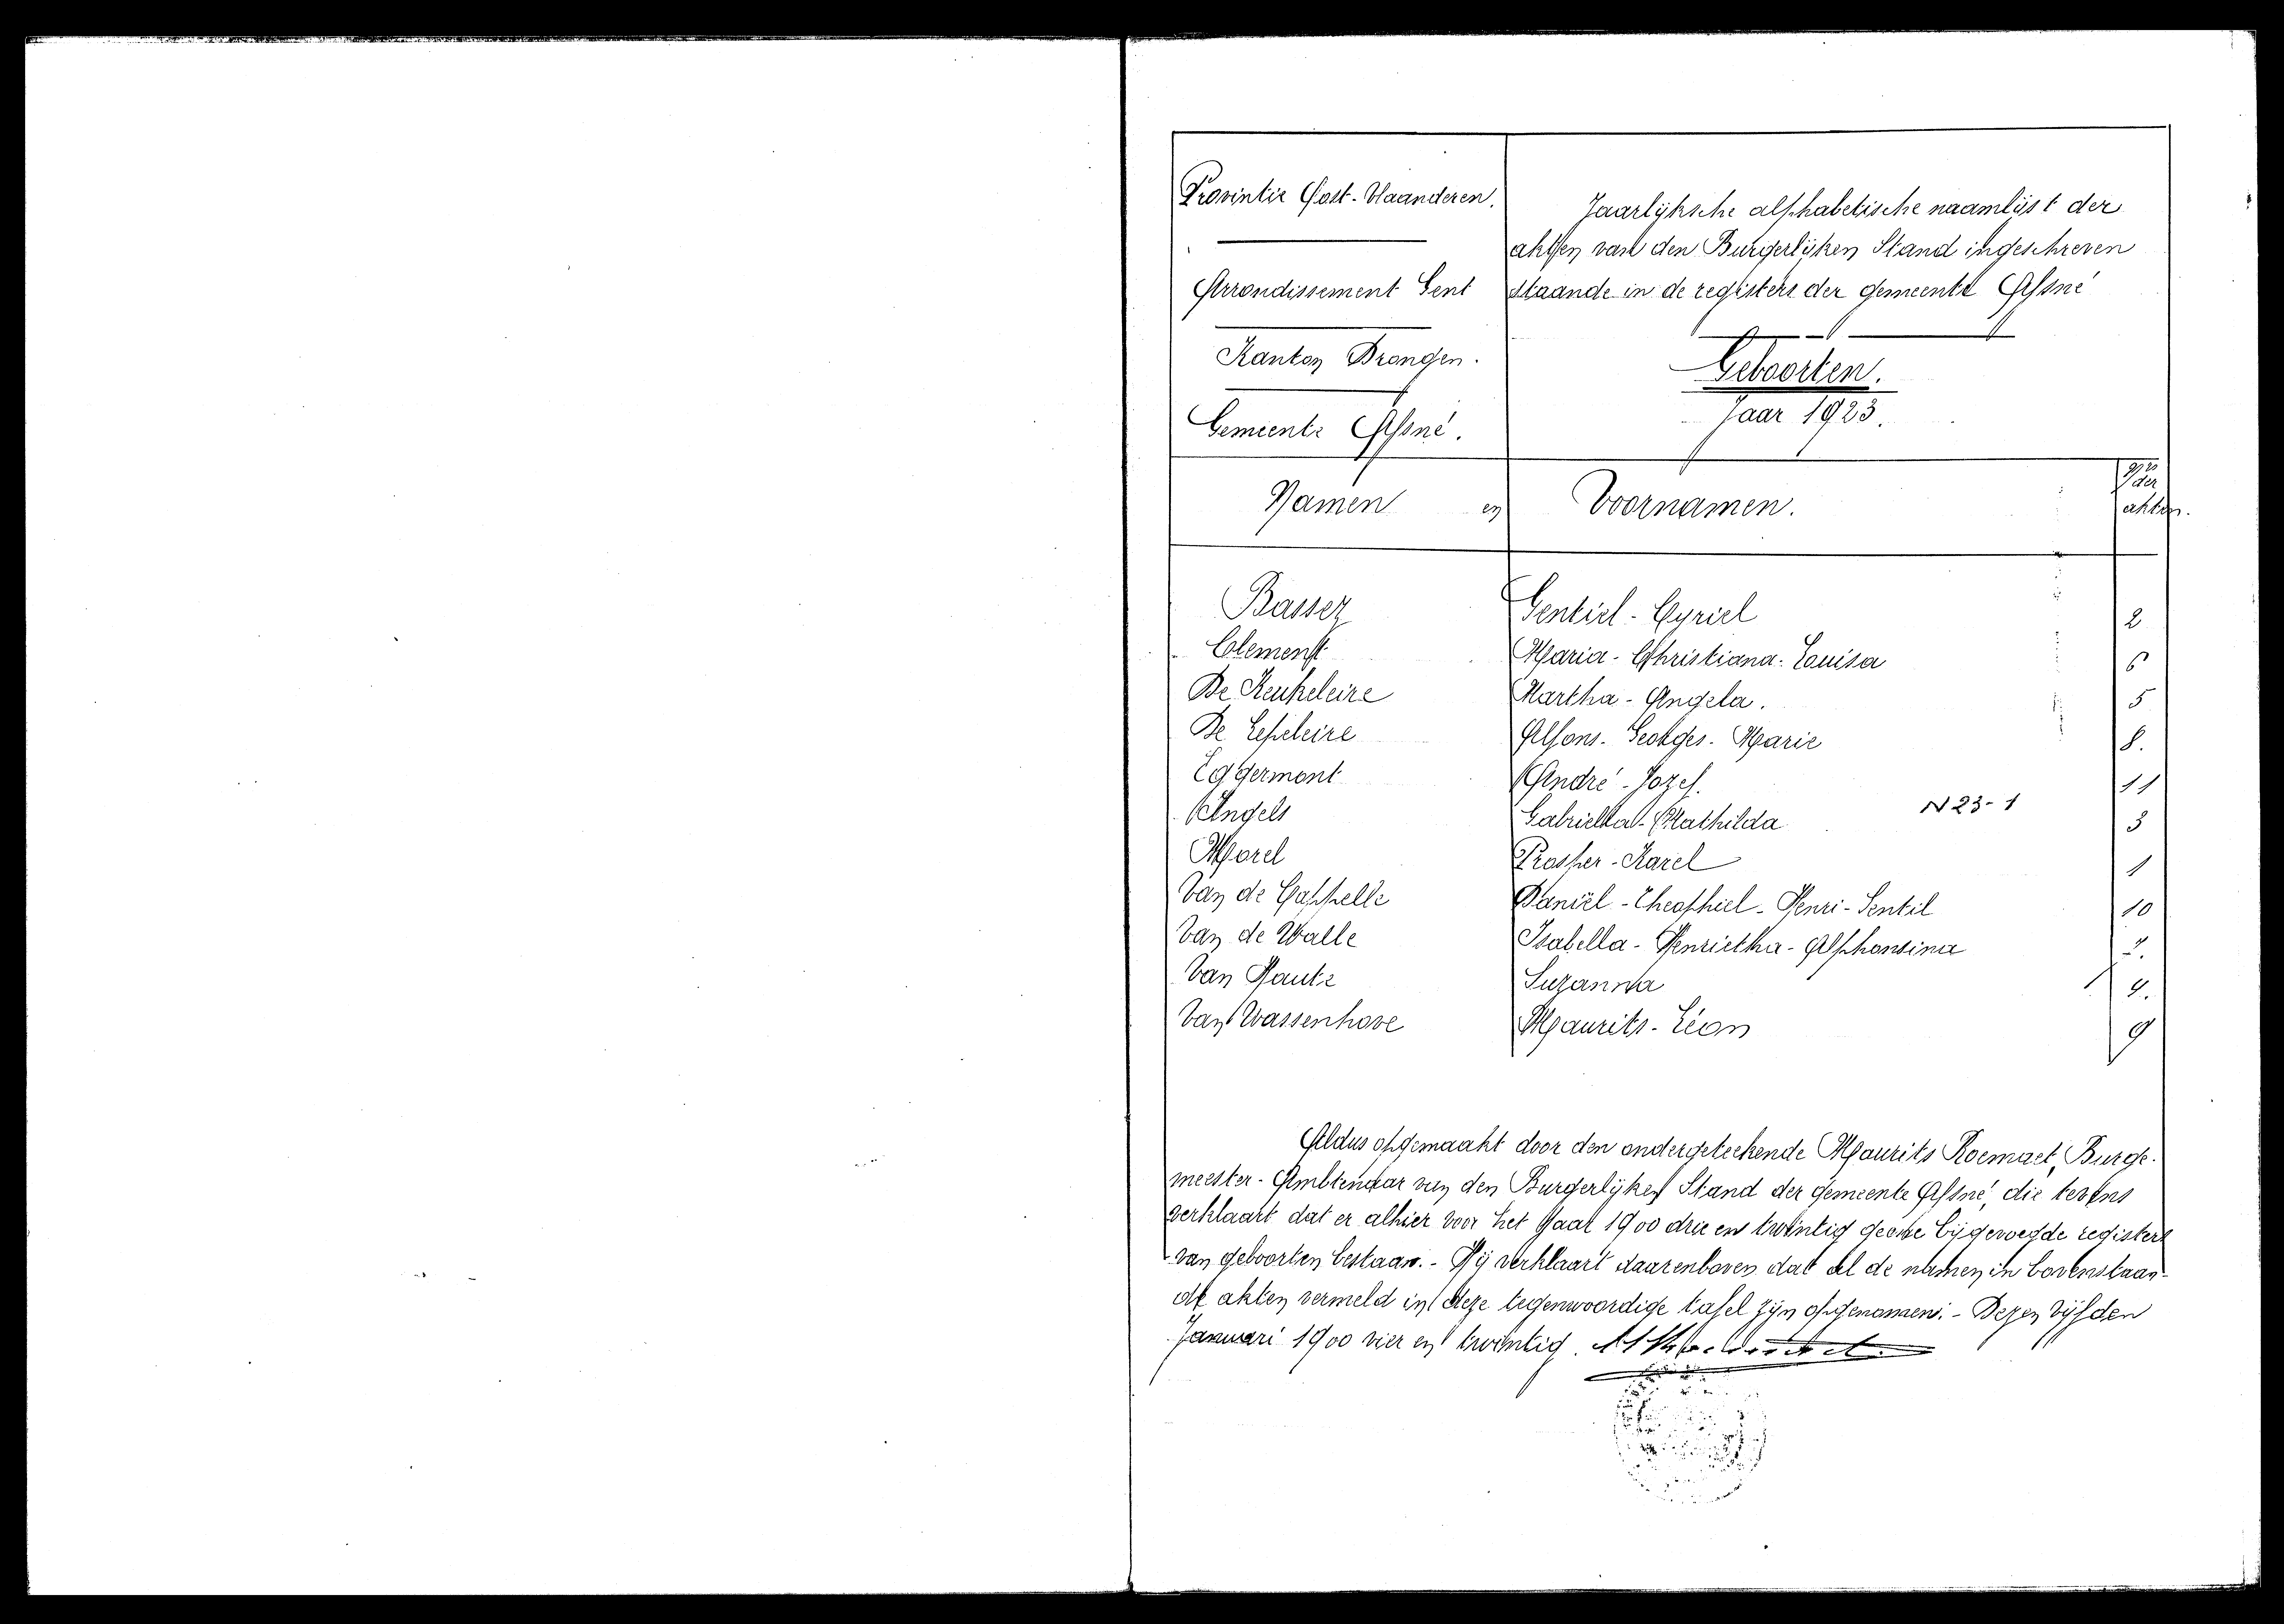 Provintie Oost-Vlaanderen.
Arrondissement Gent
Kanton Drongen.
Gemeente Afsné.
Jaarlijksche alphabetische naamlijst der
akten van den Burgerlijken Stand ingeschreven
staande in de registers der gemeente Afsné
Geboorten.
Jaar 1923.
Namen en Voornamen. Nrs der akten.
Basser Gentiel-Cyriel 2
Clement Maria-Christiana-Louisa 6
De Keukeleire Martha-Angela. 5
De Lepeleire Alfons-Georges-Marie 8.
Eggermont André-Jozef. 11
Engels Gabriella-Mathilda N23-1 3
Morel Prosper-Karel 1
Van de Cappelle Daniël-Theophiel-Henri-Gentil 10
Van de Walle Isabella-Henrietha-Alphonsina
Van Haute Suzanna 4.
Van Wassenhove Maurits-Léon 9
Aldus opgemaakt door den ondergeteekende Maurits Roemaet, Burge-
meester-Ambtenaar van den Burgerlijken Stand der gemeente Afsné, die tevens
verklaart dat er alhier voor het Jaar 1900 drie en twintig geene bijgevoegde registers
van geboorten bestaan.- Hij verklaart daarenboven dat al de namen in bovenstaan-
de akten vermeld in deze tegenwoordige tafel zijn opgenomen.- Dezen vijfden
Januari 1900 vier en twintig.